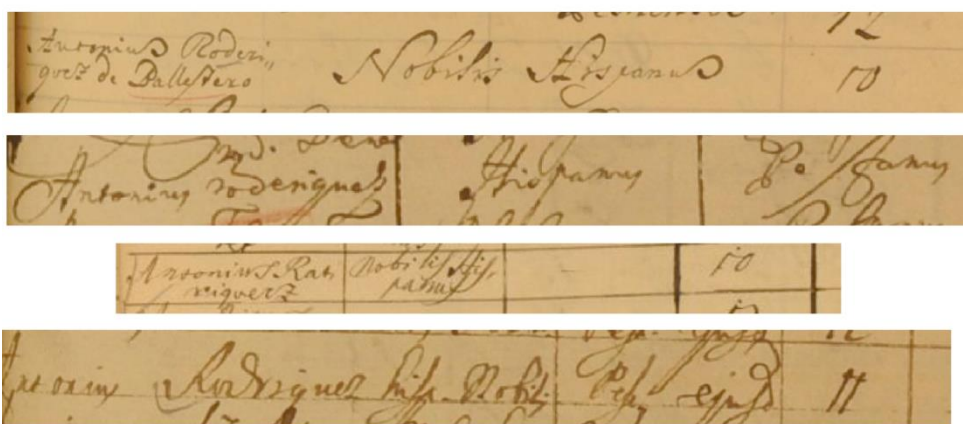 12
Antonius Roderi„
quez de Ballestero Nobilis Hispanus 10
Antonius roderiquez Hispanus
Antonius Rat
riquetz Nobilis His,
panus 10
Antonius Rodriquez hisp. Nobilis ejusd 11